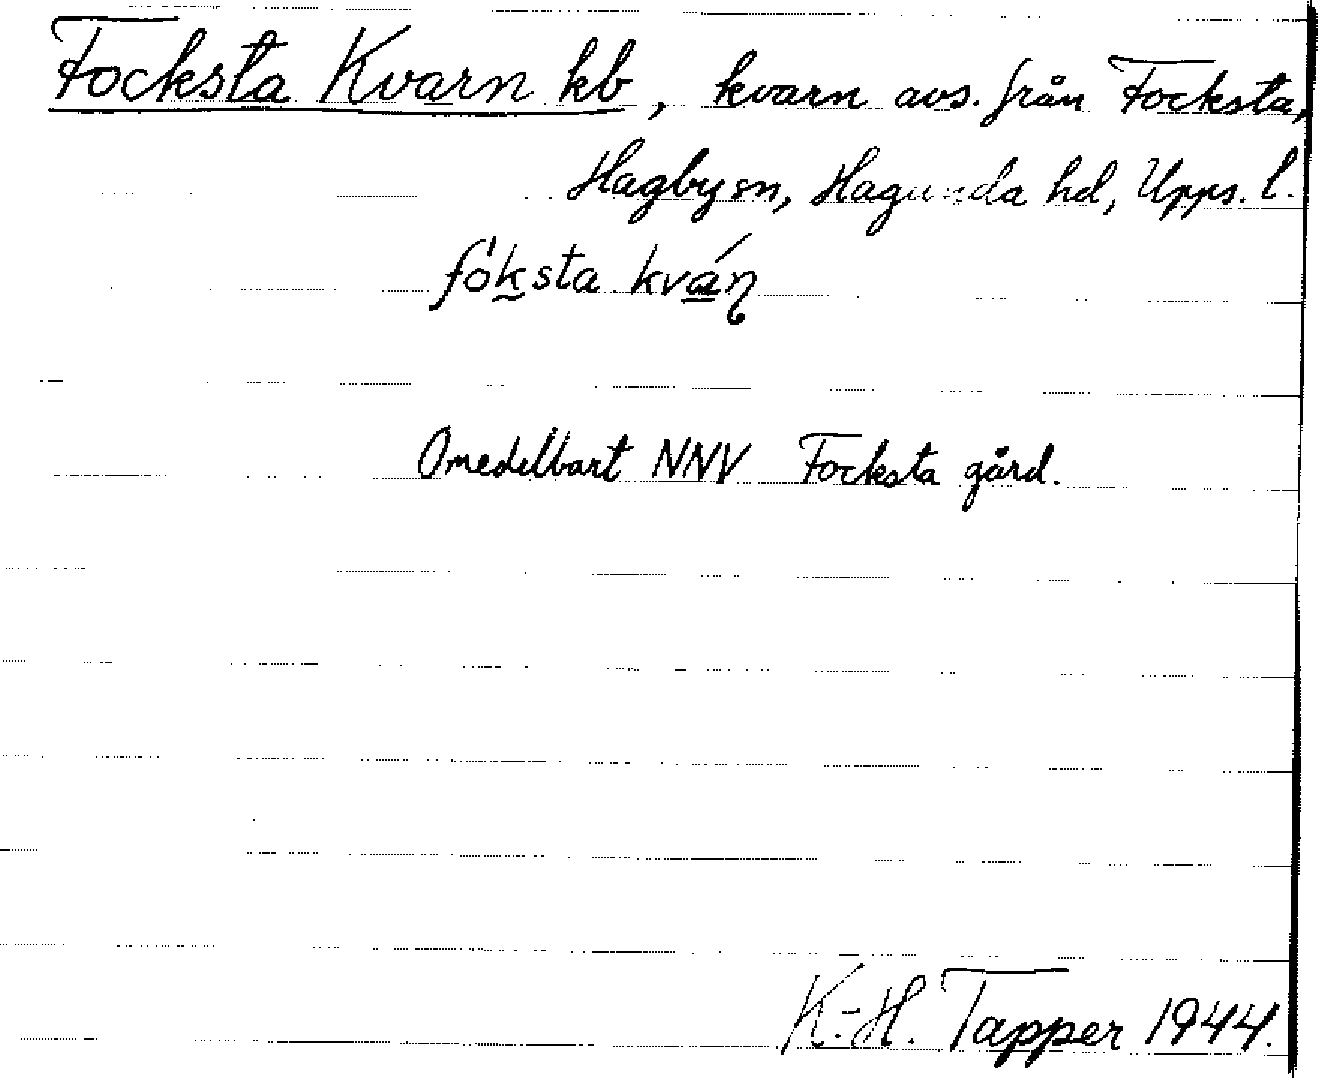 Focksta Kvarn kb, kvarn avs. från Focksta,
Hagby sn, Hagunda hd, Upps. l.
fóksta kváɳ
Omedelbart NNV Focksta gård.
K.-H. Tapper 1944.